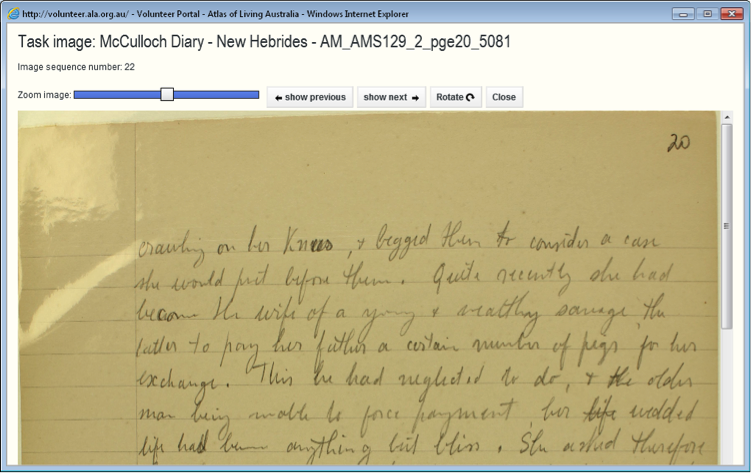 http://volunteer.ala.org.au/ - Volunteer Portal - Atlas of Living Australia - Windows Internet Explorer
Task image: McCulloch Diary - New Hebrides - AM_AMS129_2_pge20_5081
Image sequence number: 22
Zoom image:
show previous
show next
Rotate
Close
20
crawling on her Knees, & begged them to consider a case
she would put before them. Quite recently she had
become the wife of a young & wealthy savage the
latter to pay her father a certain number of pegs for her
exchange. This he had neglected to do, & the older
man being unable to force payment, her life wedded
life had been anything but bliss. She asked therefore